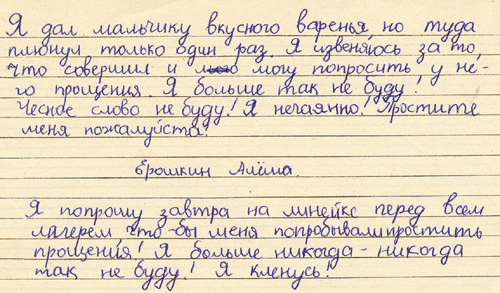 Я дал мальчику вкусного варенья, но туда
плюнул только один раз. Я извеняюсь за то,
что совершил и могу попросить, у не-
го прощения. Я больше так не буду!
Чесное слово не буду! Я нечаянно! Простите
меня пожалуйста!
Ерошкин Алёша.
Я попрошу завтра на линейке перед всем
лагерем, что-бы меня попробывали простить
прощения! Я больше никогда-никогда
так не буду! Я кленусь!